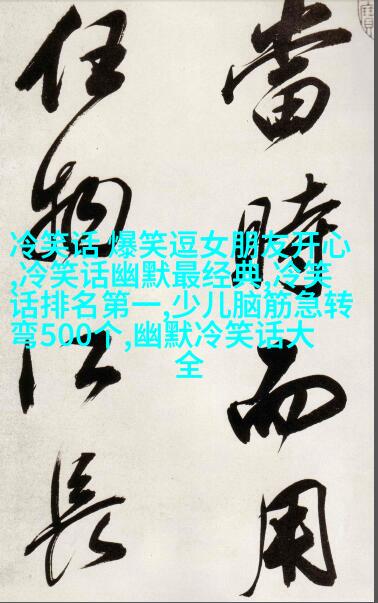 當時而用
任物長
冷笑话 爆笑逗女朋友开心
,冷笑话幽默最经典,冷笑
话排名第一,少儿脑筋急转
弯500个,幽默冷笑话大
全